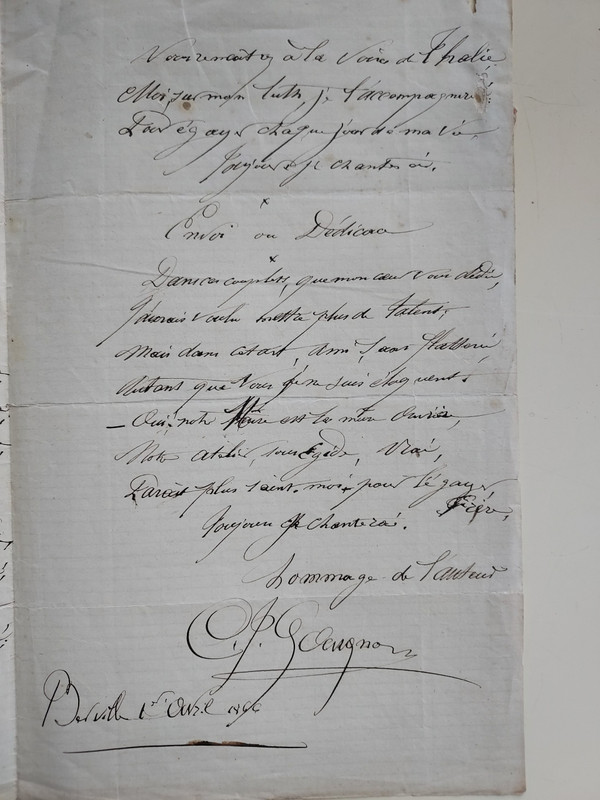 Vous remettez à la Voix de Thalie
Moi sur mon luth, je l'accompagnerai
Pour égayer chaque jour de ma vie
Toujours je chanterai.
x
Envoi ou Dédicace
x
Dans ces couplets, que mon cœur vous dédie,
J'aurais voulu mettre plus de talent,
Mais dans cet art, ami, sans flatterie,
Autant que Vous je ne suis éloquent.
– Oui, notre est la mère
Notre atelier, sous Egide, Vrai,
Parait plus saint, moi, pour l'égayer
Frère,
Toujours je chanterai.
hommage de l'auteur
C. P.
1er Avril